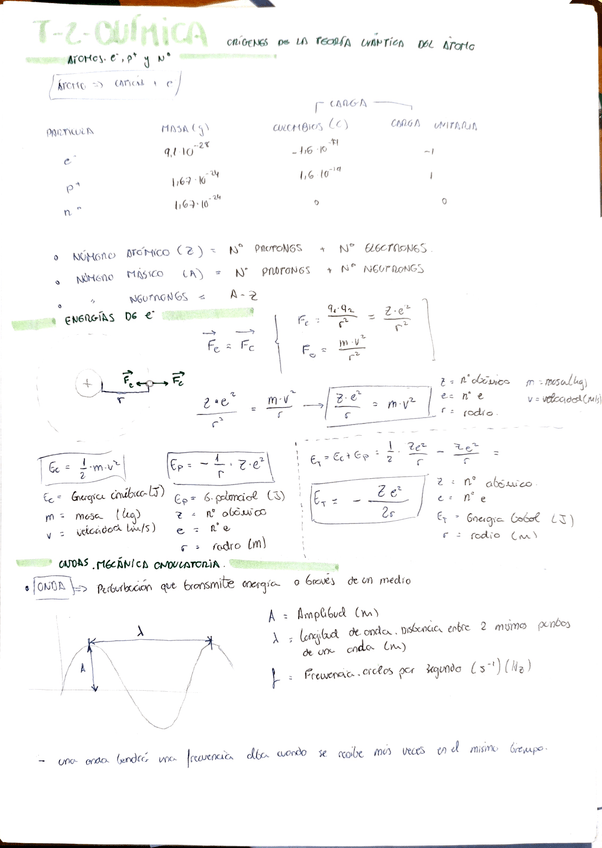 T-2-QUÍMICA ORÍGENES DE LA TEORÍA CUÁNTICA DEL ÁTOMO
ÁTOMOS. e⁻, p⁺ y Nº
CARGA
PARTÍCULA MASA (g) CULOMBIOS (C) CARGA UNITARIA
e⁻ 9,1·10⁻²⁸ -1
p⁺ 1,67·10⁻²⁴ 1,6·10⁻¹⁹ 1
nº 1,67·10⁻²⁴ 0 0
• NÚMERO ATÓMICO (Z) = Nº PROTONES + Nº ELECTRONES.
• NÚMERO MÁSICO (A) = Nº PROTONES + Nº NEUTRONES
• " NEUTRONES = A-Z
ENERGÍAS DE e⁻
Fe = Fc
Fe = q₁·q₂/r² = Z·e²/r²
= m·v²/r²
+ Fe Fc
r
Z·e²/r² = m·v²/r → Z·e²/r = m·v²
Z = nº atómico m = masa (kg)
e = nº e v = velocidad (m/s)
r = radio.
Ec = 1/2·m·v²
Ep = -1/r·Z·e²
ET = Ec + Ep = 1/2·Ze²/r - Ze²/r =
ET = - Ze²/2r
Ec = Energía cinética (J)
m = masa (kg)
v = velocidad (m/s)
Ep = E. potencial (J)
Z = nº atómico
e = nº e
r = radio (m)
Z = nº atómico.
e = nº e
ET = Energía total (J)
r = radio (m)
ONDAS. MECÁNICA ONDULATORIA.
• ONDA => Perturbación que transmite energía a través de un medio
λ
A
A = Amplitud (m)
λ = longitud de onda. Distancia entre 2 mismo puntos
de una onda (m)
f = Frecuencia. ciclos por segundo (s⁻¹) (Hz)
- una onda tendrá una frecuencia alta cuando se recibe más veces en el mismo tiempo.